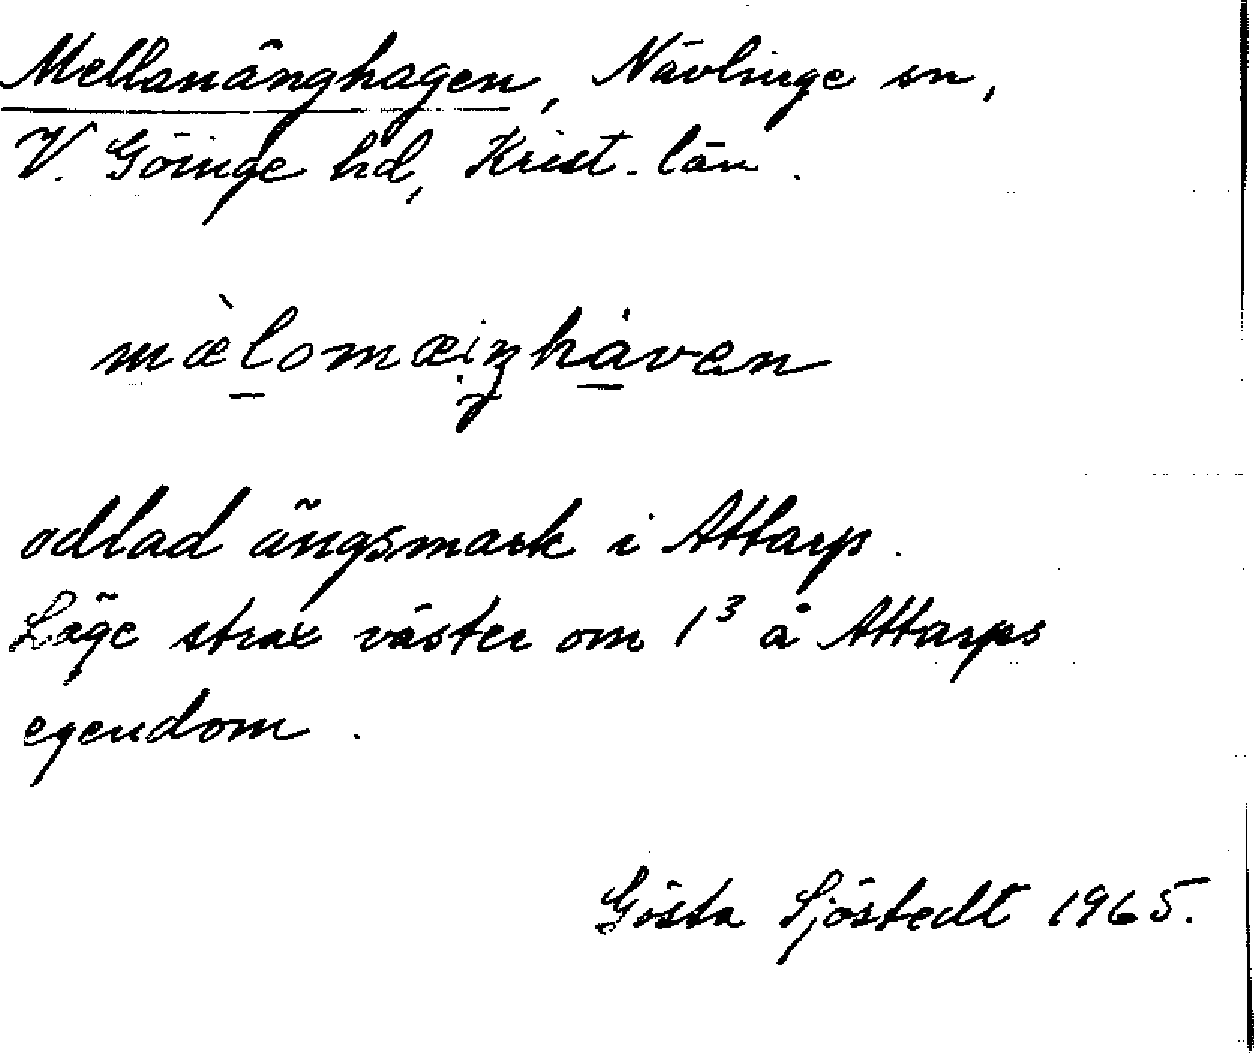 Mellanänghagen, Nävlinge sn,
V. Göinge hd, Krist. län.
mæ̀lomæiŋhåven
odlad ängsmark i Attarp.
Läge strax väster om 1³ å Attarps
egendom.
Gösta Sjöstedt 1965.